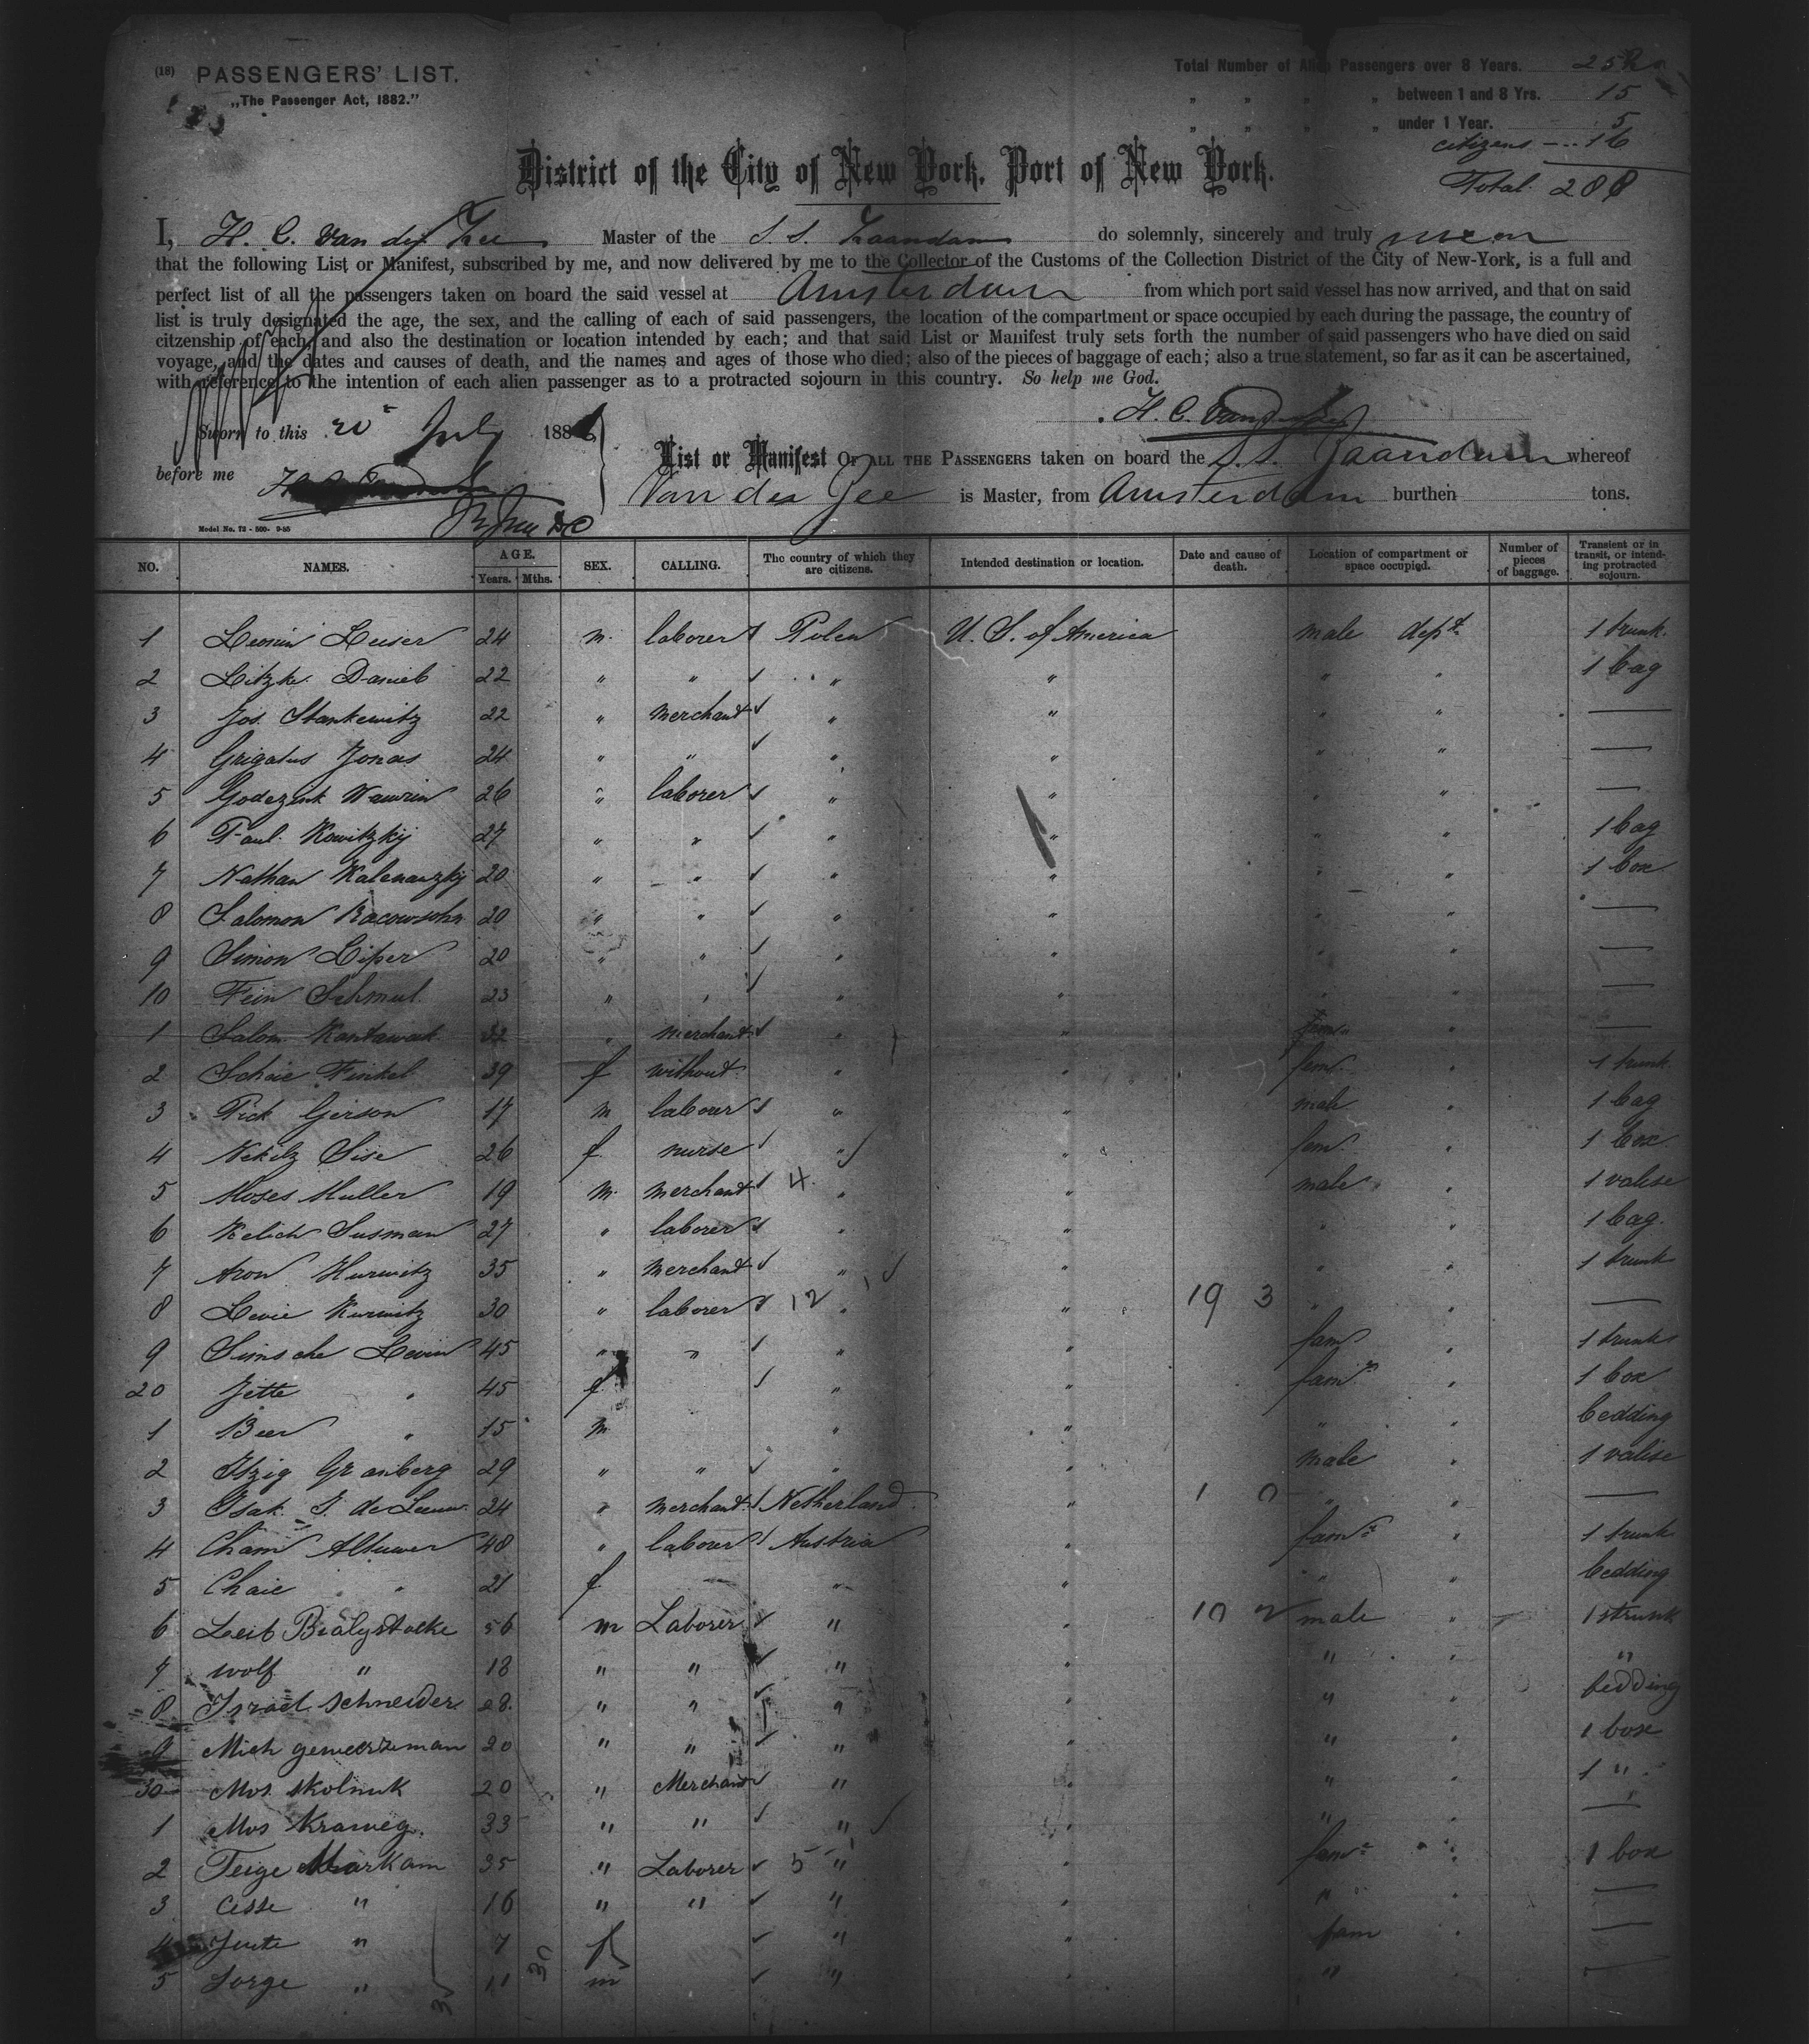 (18) PASSENGERS' LIST.
„The Passenger Act, 1882."
Total Number of Alien Passengers over 8 Years. 252
„ „ „ „ between 1 and 8 Yrs. 15
„ „ „ „ under 1 Year. 5
citizens 16
Total 288
District of the City of New York, Port of New York.
I, H. C. Van der Zee Master of the S. S. Zaandam do solemnly, sincerely and truly swear
that the following List or Manifest, subscribed by me, and now delivered by me to the Collector of the Customs of the Collection District of the City of New-York, is a full and
perfect list of all the passengers taken on board the said vessel at Amsterdam from which port said vessel has now arrived, and that on said
list is truly designated the age, the sex, and the calling of each of said passengers, the location of the compartment or space occupied by each during the passage, the country of
citzenship of each, and also the destination or location intended by each; and that said List or Manifest truly sets forth the number of said passengers who have died on said
voyage, and the dates and causes of death, and the names and ages of those who died; also of the pieces of baggage of each; also a true statement, so far as it can be ascertained,
with reference to the intention of each alien passenger as to a protracted sojourn in this country. So help me God.
H. C. Van der Zee
Sworn to this 20 July 188
before me
List or Manifest OF ALL THE PASSENGERS taken on board the S. S. Zaandam whereof
Van der Zee is Master, from Amsterdam burthen tons.
Model No. 72 - 500- 9-85
NO. NAMES. AGE. Years. Mths. SEX. CALLING. The country of which they are citizens. Intended destination or location. Date and cause of death. Location of compartment or space occupied. Number of pieces of baggage. Transient or in transit, or intending protracted sojourn.
1 Leiser 24 m. laborer Polen U. S. of America male dept. 1 trunk.
2 Litzke Daniel 22 " " " " " " 1 bag
3 Jos. Stankewitz 22 " merchant " " " " —
4 Grigatus Jonas 24 " " " " " " —
5 Godezink Wawrin 26 " laborer " " " " —
6 Paul Kowitzkij 27 " " " " " " 1 bag
7 Nathan Kalenanzkij 20 " " " " " " 1 box
8 Salomon Racowsohn 20 " " " " " " —
9 Simon Liper 20 " " " " " " —
10 Fein Schmul 23 " " " " " " —
1 Salom. Kantawak 32 " merchant " " fam. " —
2 Schaie Finkel 39 f without " " fem. " 1 trunk
3 Pick Gerson 17 m laborer " " male " 1 bag
4 Nekitz Sise 26 f nurse " " fem. " 1 box
5 Moses Muller 19 m. merchant 4 " " male " 1 valise
6 Kelich Susman 27 " laborer " " " " 1 bag.
7 Aron Hurwitz 35 " merchant " " " " 1 trunk
8 Levie Kurwitz 30 " laborer 12 " " 19 3 " " —
9 Simsche Levin 45 " " " " fam " 1 trunks
20 Jette " 45 f " " fam " 1 box
1 Beer " 15 m " " " " bedding
2 Itzig Granberg 29 " " " " male " 1 valise
3 Isak. J. de Leeuw 24 " merchant Netherland " 1 0 " " —
4 Cham Altuwer 48 " labourer Austria " fam " 1 trunk
5 Chaie " 21 f — " " " " bedding
6 Leib Bialystocke 56 m Laborer " " 10 2 male " 1 strunk
7 wolf " 18 " " " " " " "
8 Israel Schneider 28. " " " " " " bedding
9 Mich geweerzeman 20 " " " " " " 1 box
30 Mos. Skolnuk 20 " Merchant " " " " 1 "
1 Mos Krameg. 33 " " " " " " —
2 Feige Markam 35 " Laborer 5 " " fam " 1 box
3 Cisse " 16 " " " " " " —
4 Jente " 7 f " " fam " —
5 Sorge " 11 m " " " "
30